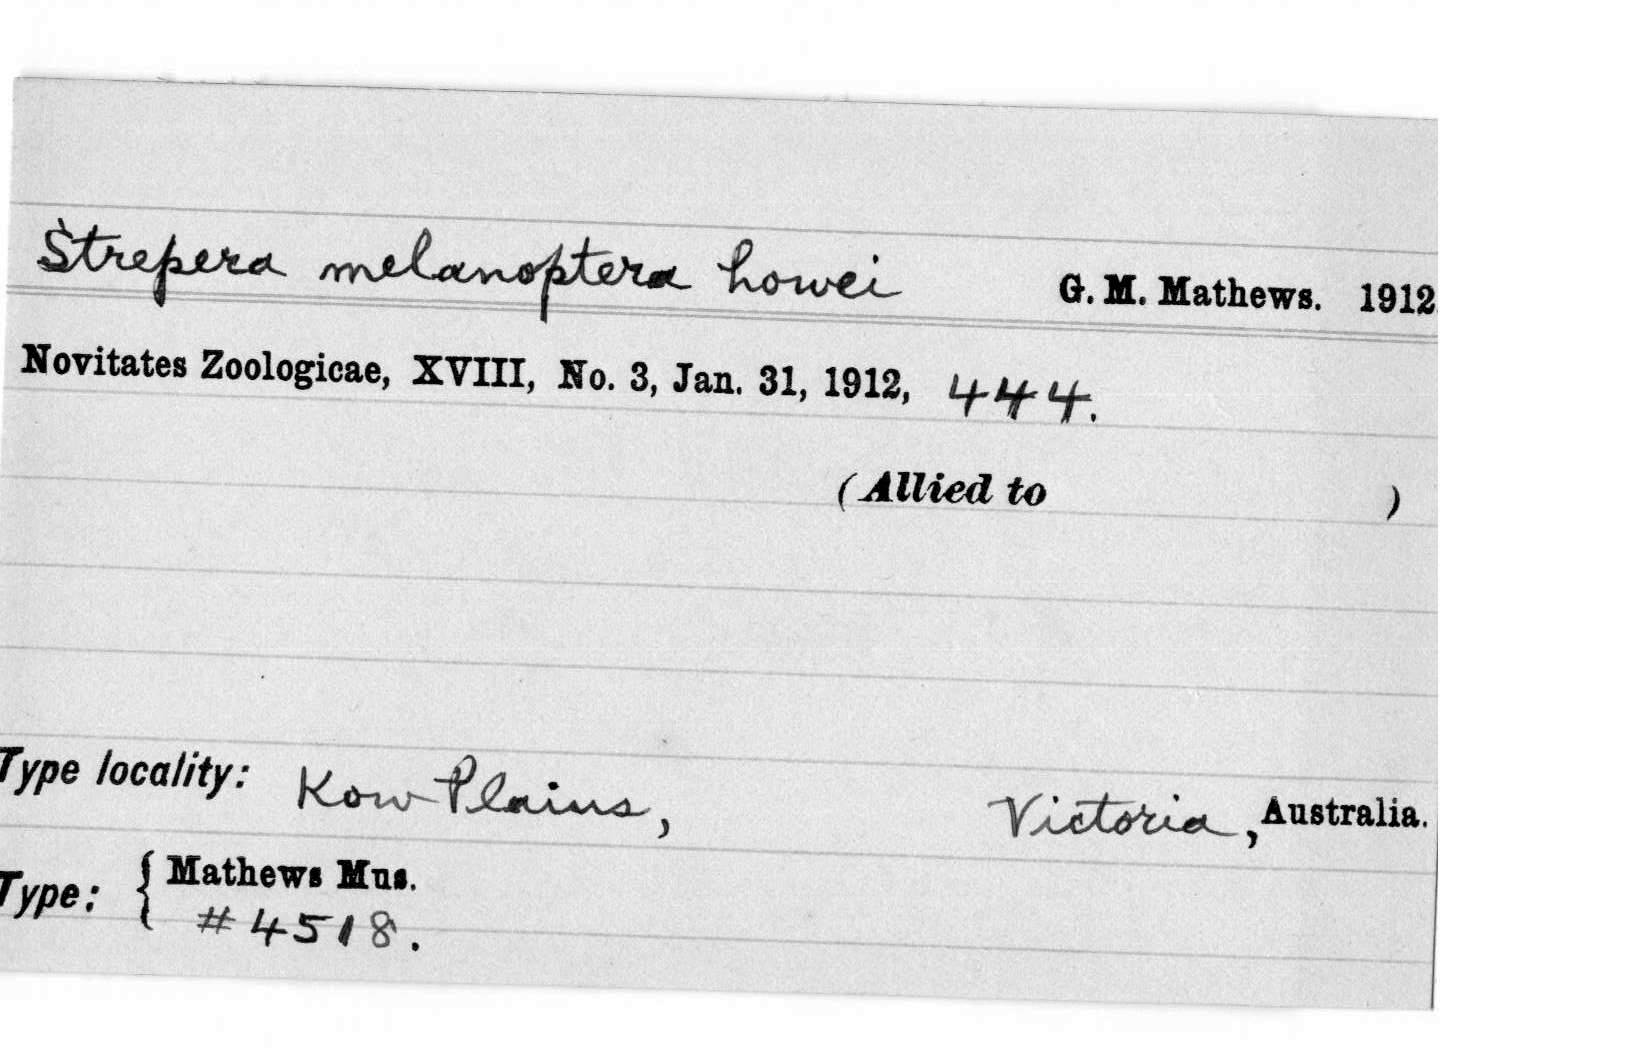 Strepera melanoptera howei G. M. Mathews. 1912.
Novitates Zoologicae, XVIII, No. 3, Jan. 31, 1912, 444.
(Allied to )
Type locality: Kow Plains, Victoria, Australia.
Type: { Mathews Mus.
#4518.